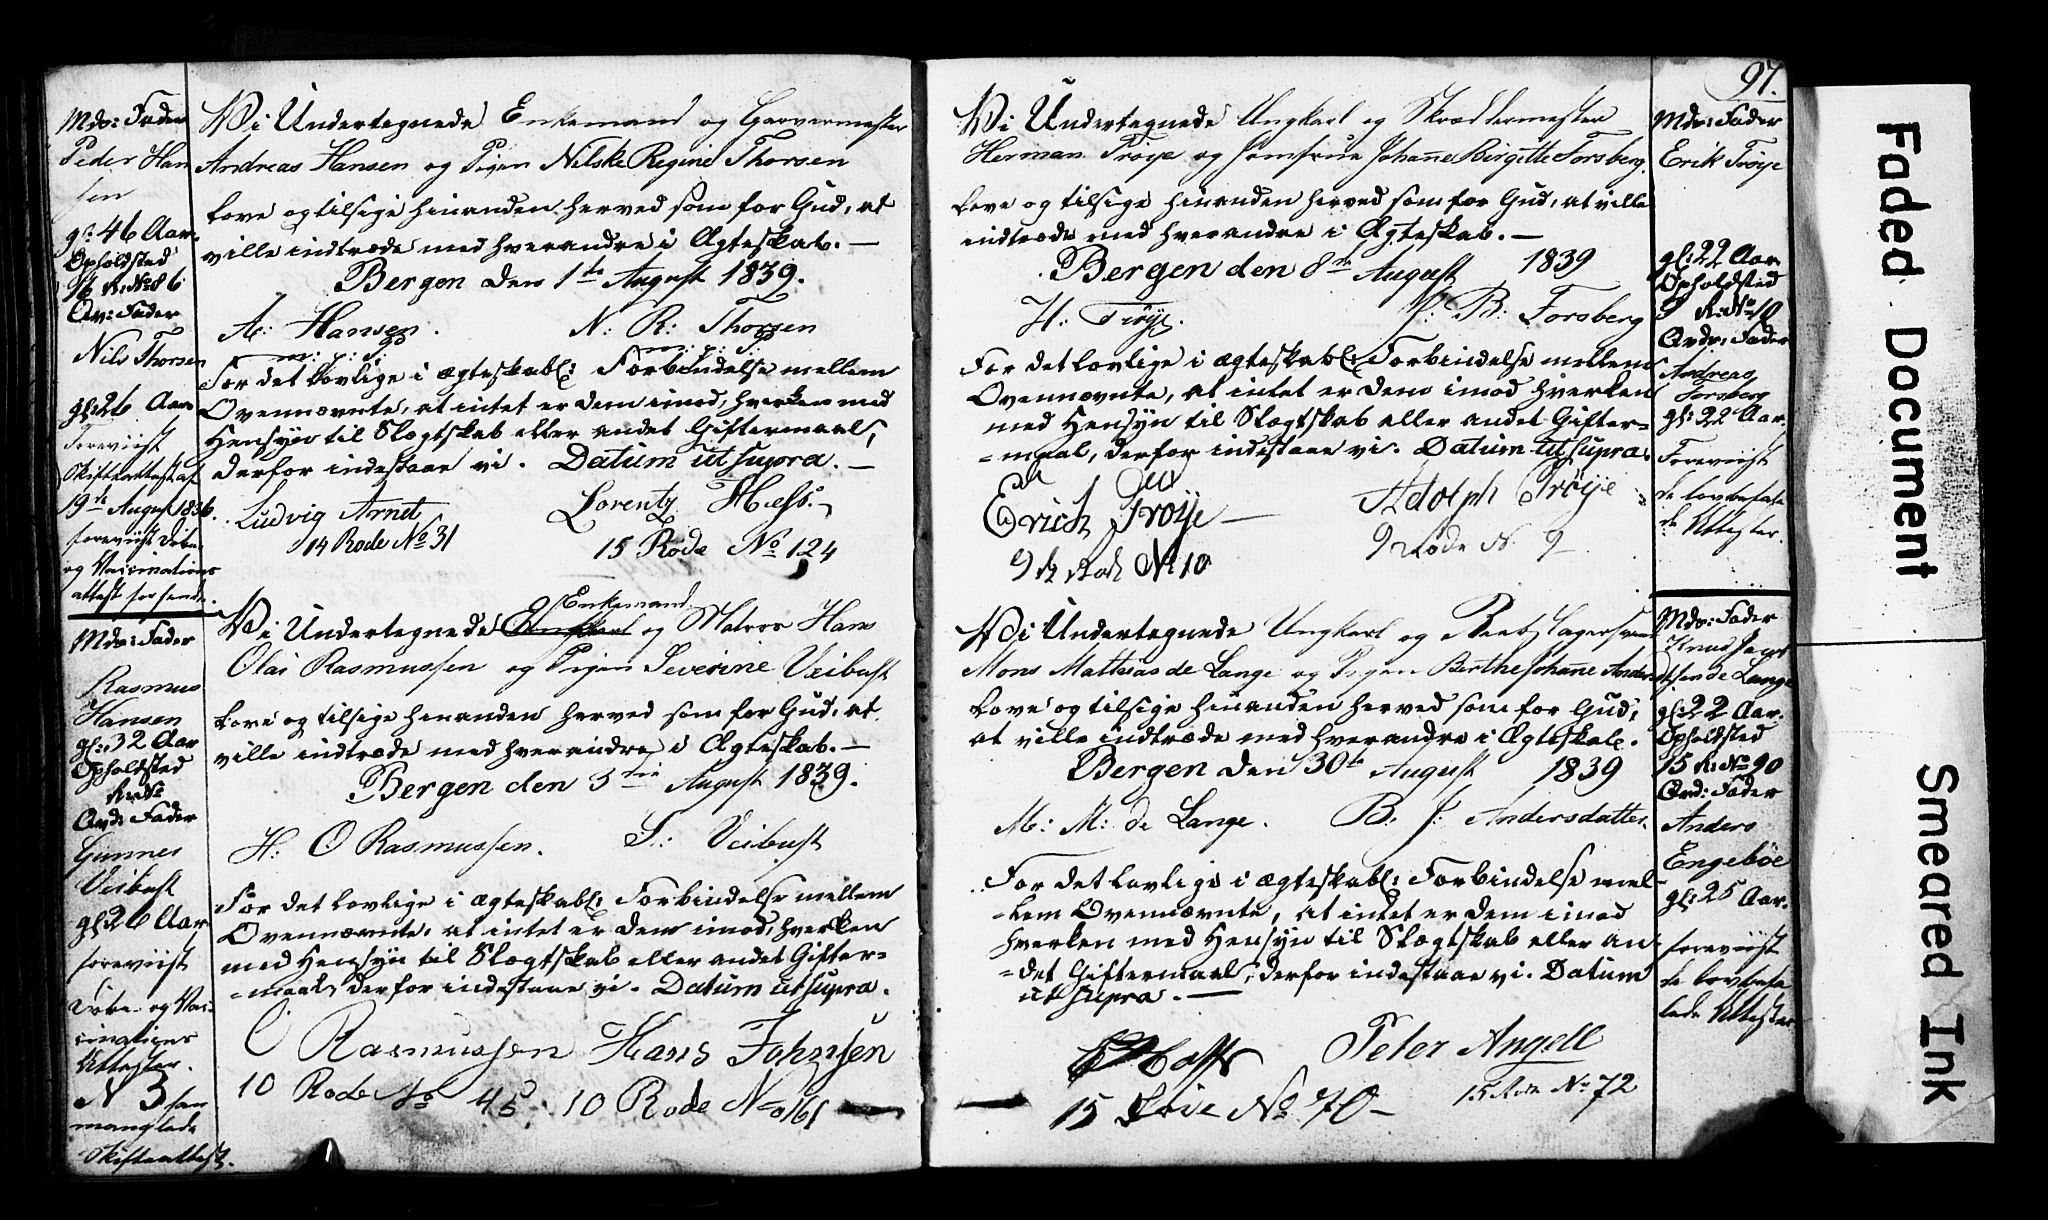 Mds: Fader
Peder Han
sen
gl: 46 Aar.
Opholdsted
16 R: No 86
Qv: Fader
Nils Thorsen
gl: 26 Aar
Foreviist
Skifteattest af
19de August 1836.
foreviist Døbe-
og Vaccinations
attest for hende.
Vi Undertegnede Enkemand og Garvermester
Andreas Hansen og Pigen Nilske Regine Thorsen
love og tilsige hinanden herved som for Gud, at
ville indtræde med hverandre i Ægteskab. —
Bergen den 1te August 1839.
A: Hansen. N: R: Thorsen
m: p: s: m: p: s:
For det lovlige i ægteskabl: Forbindelse mellem
Ovennævnte, at intet er dem imod, hverken med
Hensyn til Slægtskab eller andet Giftermaal,
derfor indestaae vi. Datum ut supra. —
Ludvig Arnet Lorentz Hess.
14 Rode No 31 15 Rode No 124
Mds: Fader
Rasmus
Hansen
gl: 32 Aar
Opholdsted
R: No
Qvd: Fader
Gunnes
Veibust
gl 26 Aar
foreviist
Døbe- og Vac-
cinations
Attester.
N 3 han
manglede
Skifteattest.
Enkemand
Vi Undertegnede Ungkarl og Matros Hans
Olai Rasmussen og Pigen Severine Veibust
love og tilsige hinanden herved som for Gud, at
ville indtræde med hverandre i Ægteskab. —
Bergen den 5te August 1839.
H: O Rasmussen. S: Veibust
For det lovlige i ægteskabl: Forbindelse mellem
Ovennævnte, at intet er dem imod, hverken
med Hensyn til Slægtskab eller andet Gifter-
-maal, derfor indestaae vi. Datum ut supra.
O Rasmussen Hans Johnsen
10 Rode No 45. 10 Rode No 161
97.
Vi Undertegnede Ungkarl og Skræddermester
Herman Trøye og Jomfrue Johanne Birgitte Forsberg.
love og tilsige hinanden herved som for Gud, at ville
indtræde med hverandre i Ægteskab. —
Bergen den 8de August 1839
H: Trøye. J: B: Forsberg
For det lovlige i ægteskabl: Forbindelse mellem
Ovennævnte, at intet er dem imod hverken
med Hensyn til Slægtskab eller andet Gifter-
-maal, derfor indestaae vi. Datum ut supra.
Erich Troije Adolph Trøije
9de Rode No 10 9 Rode N. 9
Mds: Fader
Erik Trøye
gl: 22 Aar
Opholdsted
9 R: No 10
Qvds: Fader
Andreas
Forsberg
gl: 22 Aar.
Foreviist
de lovbefale
de Attester.
Vi Undertegnede Ungkarl og Reebslagersvend
Mons Mathias de Lange og Pigen Berthe Johanne Anders
love og tilsige hinanden herved som for Gud,
at ville indtræde med hverandre i Ægteskab.
Bergen den 30te August 1839
M: M: de Lange. B: J: Andersdatter.
For det lovlige i ægteskabl: Forbindelse mel-
-lem Ovennævnte, at intet er dem imod
hverken med Hensyn til Slægtskab eller an-
-det Giftermaal, derfor indestaae vi. Datum
ut supra. —
Peter Angell
15 No 70 — 15 Rode No 72
Mds: Fader
Knud
de Lange
gl: 22 Aar.
Opholdsted
15 R: No 90
Qvd: Fader
Anders
Engebøe
gl: 25 Aar.
foreviist
de lovbefa
lede Attester
Faded Document
Smeared Ink